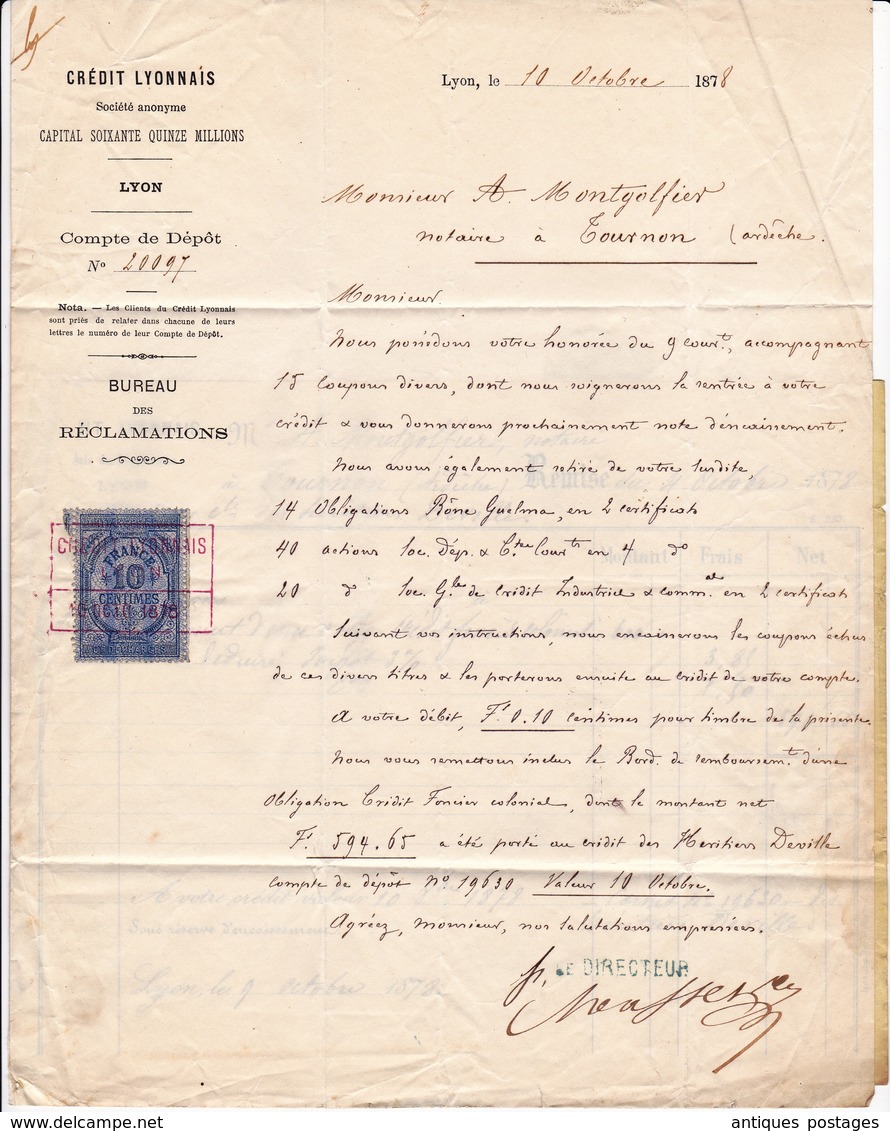 CRÉDIT LYONNAIS
Société anonyme
CAPITAL SOIXANTE QUINZE MILLIONS
LYON
Compte de Dépôt
Nº 20097
Nota. — Les Clients du Crédit Lyonnais
sont priés de relater dans chacune de leurs
lettres le numéro de leur Compte de Dépôt.
BUREAU
DES
RÉCLAMATIONS
CRÉDIT LYONNAIS
FRANCE
10
CENTIMES
Lyon, le 10 Octobre 1878
Monsieur A. Montgolfier
notaire à Tournon (ardêche.
Monsieur.
Nous possédons votre honorée du 9 courᵗ, accompagnant
15 coupons divers, dont nous soignerons la rentrée à votre
crédit & vous donnerons prochainement note d'encaissement.
Nous avons également retiré de votre susdite,
14 Obligations Bône Guelma, en 2 certificats
40 actions Soc. Dép. & Cᵗᵉˢ Courᵗˢ en 4 dº
20 dº Soc. Gˡᵉ de Crédit Industriel & commᵃˡ en 2 certificats
Suivant vos instructions, nous encaisserons les coupons échus
de ces divers titres & les porterons ensuite au crédit de votre compte.
A votre débit, Fˢ 0.10 centimes pour timbre de la présente.
Nous vous remettons inclus le Bord. de remboursemᵗ d'une
Obligation Crédit Foncier colonial, dont le montant net
Fˢ 594.65 a été porté au crédit des Héritiers Deville
compte de dépôt Nº 19630 Valeur 10 Octobre.
Agréez, Monsieur, nos salutations empressées.
LE DIRECTEUR
Remise
Montant Frais Net
Lyon, le 9 octobre 1878
antiques postages